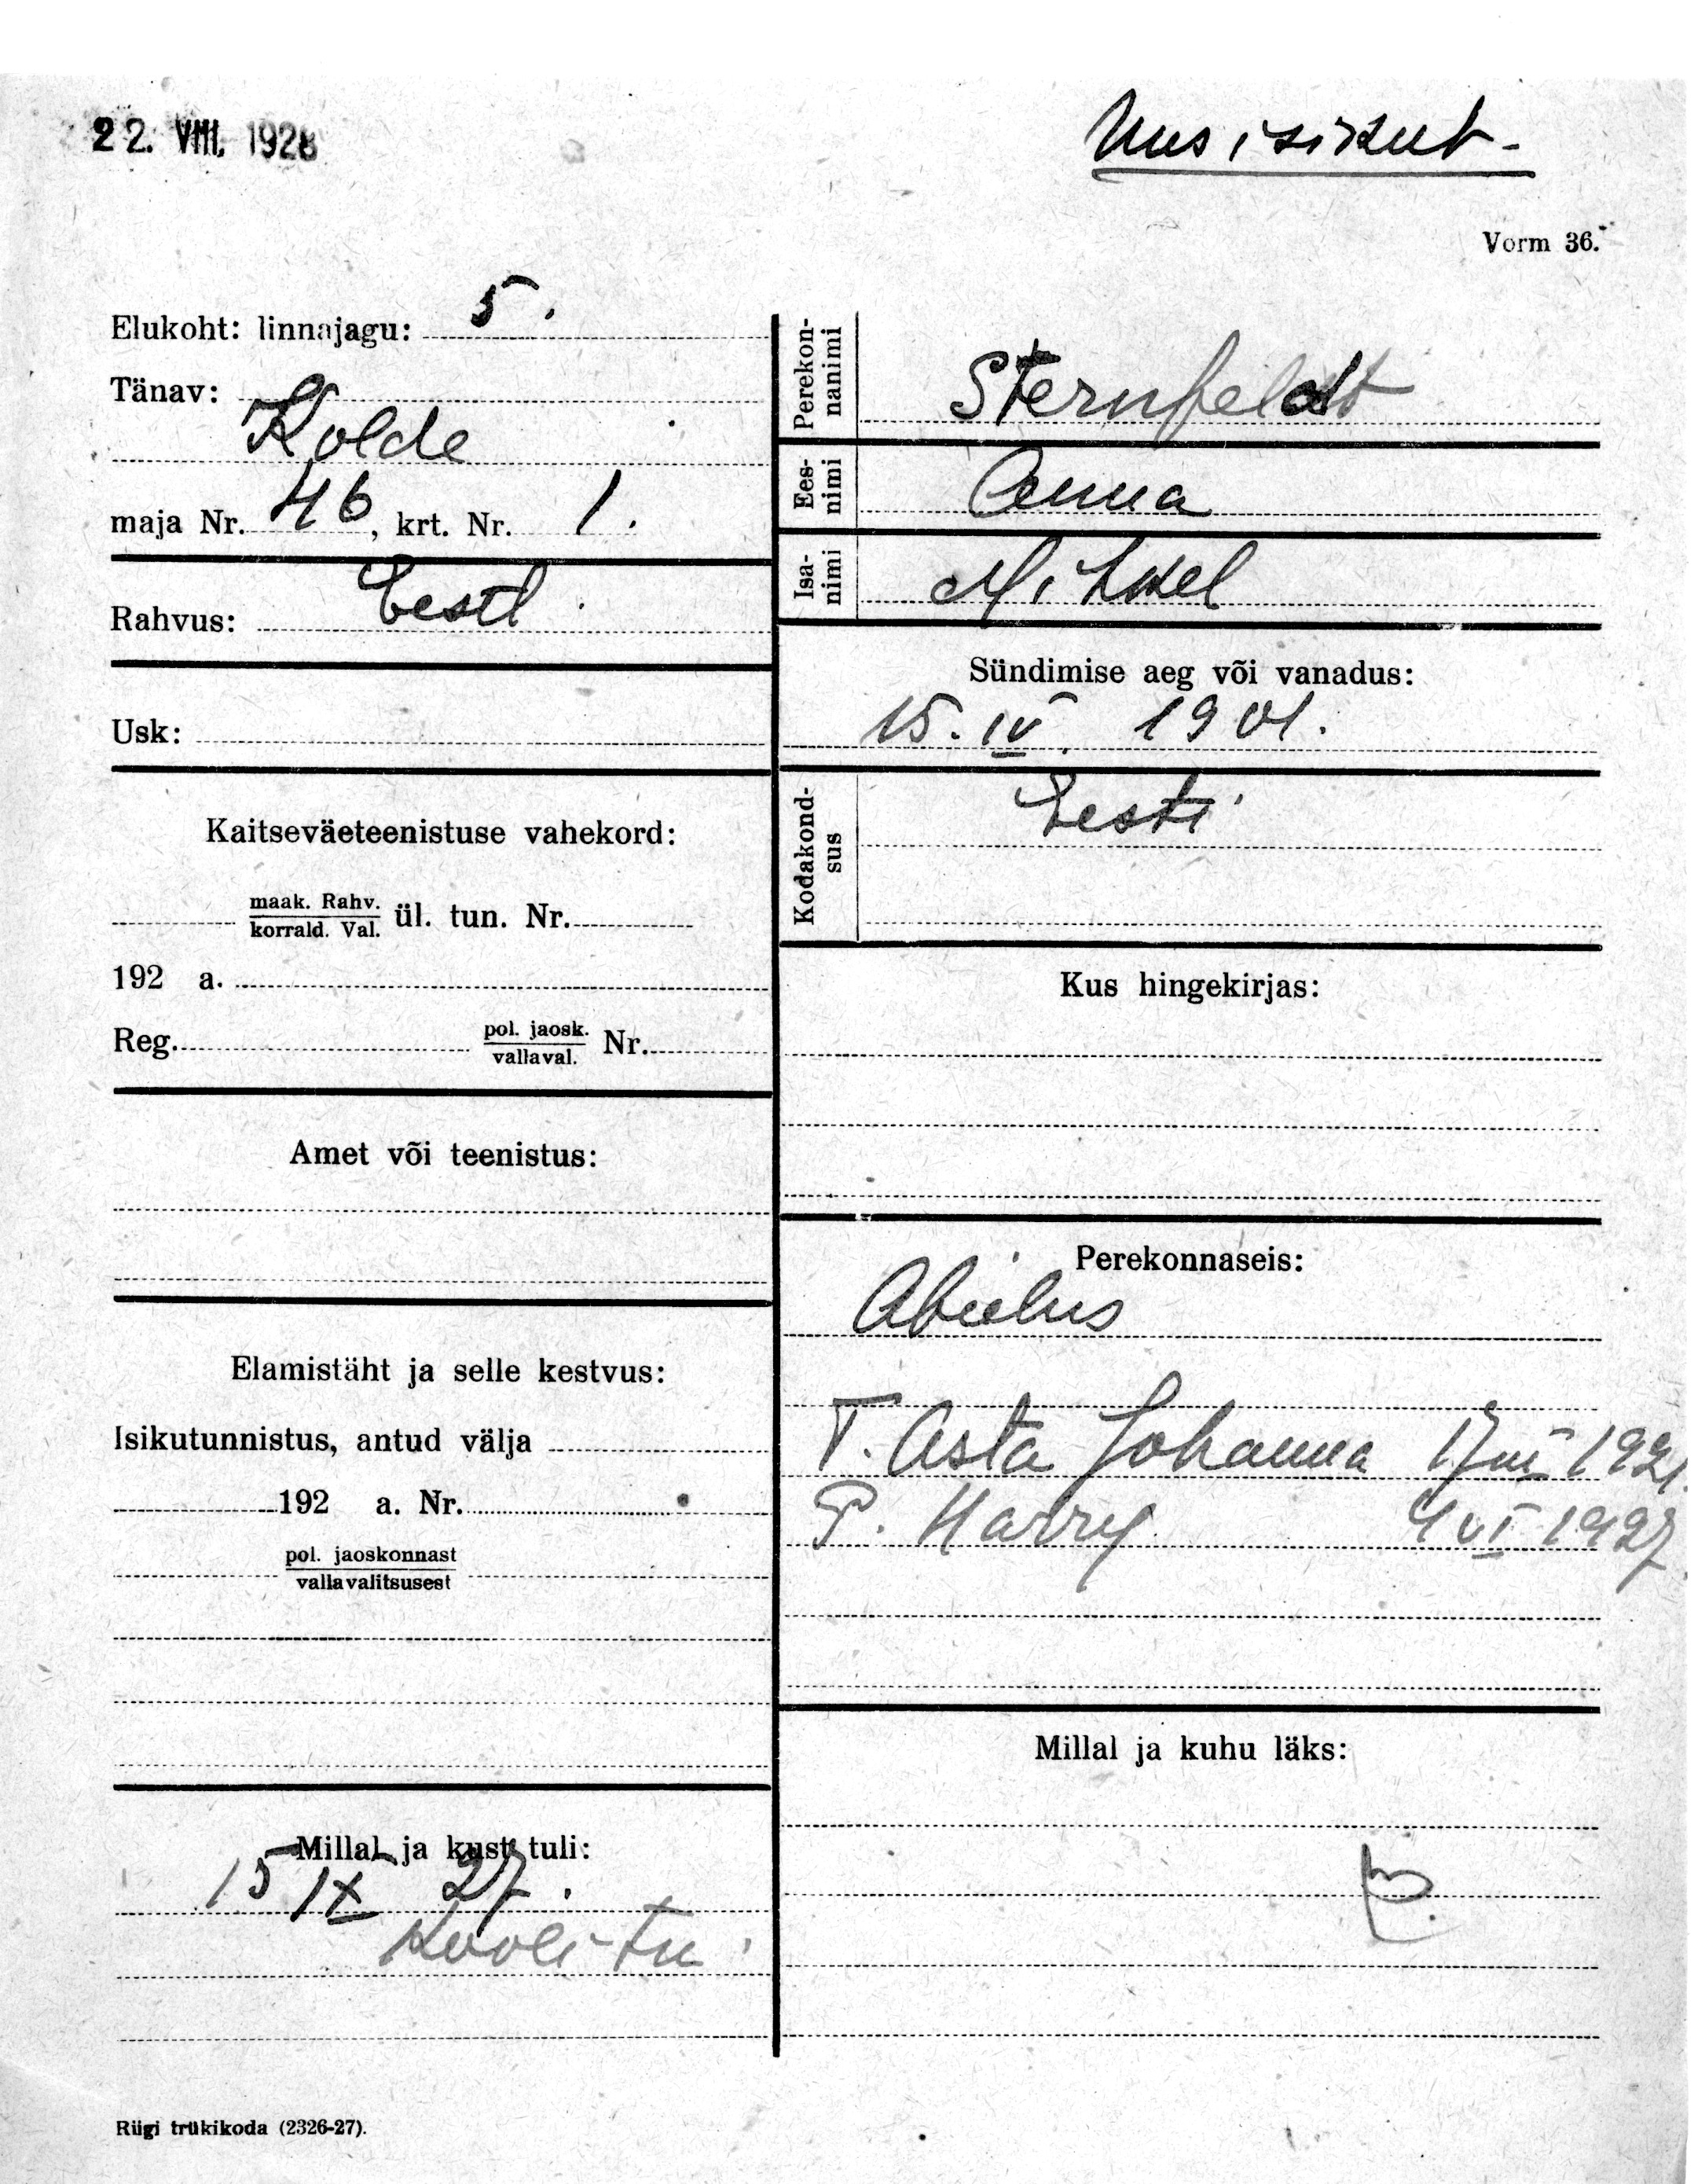 22. VIII. 1928
Uus isikut-
Vorm 36.
Elukoht: linnajagu: 5.
Tänav:
Kolde
maja Nr. 46, krt. Nr. 1.
Rahvus: Eestl
Usk:
Kaitseväeteenistuse vahekord:
maak. Rahv.
korrald. Val. ül. tun. Nr.
192 a.
Reg. pol. jaosk.
vallaval. Nr.
Amet või teenistus:
Elamistäht ja selle kestvus:
Isikutunnistus, antud välja
192 a. Nr.
pol. jaoskonnast
vallavalitsusest
Millal ja kust tuli:
15 IX 27.
Kooli tn
Perekon-
nanimi
Sternfeldt
Ees-
nimi
Anna
Isa-
nimi
Mihkel
Sündimise aeg või vanadus:
15. IV. 1901.
Kodakond-
sus
Eesti
Kus hingekirjas:
Perekonnaseis:
Abielus
T. Asta Johanna 1921.
P. Harry 4 VI 1927
Millal ja kuhu läks:
Riigi trükikoda (2326-27).